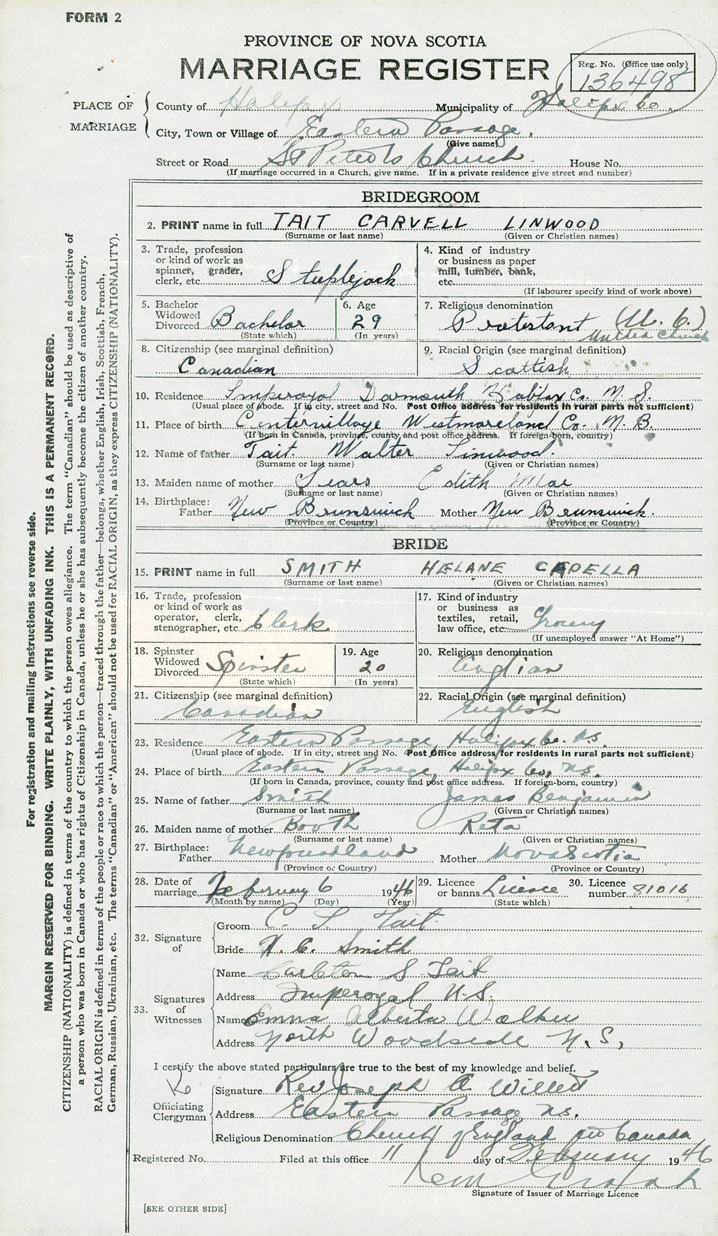 FORM 2
PROVINCE OF NOVA SCOTIA
MARRIAGE REGISTER
Reg. No. (Office use only)
136498
PLACE OF MARRIAGE
County of Municipality of Halifax Co.
City, Town or Village of Eastern Passage.
(Give name)
Street or Road St Peter's Church House No.
(If marriage occurred in a Church, give name. If in a private residence give street and number)
BRIDEGROOM
2. PRINT name in full TAIT CARVELL LINWOOD
(Surname or last name) (Given or Christian names)
3. Trade, profession or kind of work as spinner, grader, clerk, etc. Steeplejack
4. Kind of industry or business as paper mill, lumber, bank, etc.
(If labourer specify kind of work above)
5. Bachelor Widowed Divorced Bachelor
(State which)
6. Age 29
(In years)
7. Religious denomination Protestant (U. C.)
United Church
8. Citizenship (see marginal definition)
Canadian
9. Racial Origin (see marginal definition)
Scottish
10. Residence Imperoyal Darmouth Halifax Co. N.S.
(Usual place of abode. If in city, street and No. Post Office address for residents in rural parts not sufficient)
11. Place of birth Centervillage Westmoreland Co. N.B.
(If born in Canada, province, county and post office address. If foreign-born, country)
12. Name of father Tait Walter Linwood
(Surname or last name) (Given or Christian names)
13. Maiden name of mother Sears Edith Mae
(Surname or last name) (Given or Christian names)
14. Birthplace: Father New Brunswick Mother New Brunswick.
(Province or Country) (Province or Country)
BRIDE
15. PRINT name in full SMITH HELANE CAPELLA
(Surname or last name) (Given or Christian names)
16. Trade, profession or kind of work as operator, clerk, stenographer, etc. Clerk
17. Kind of industry or business as textiles, retail, law office, etc. Grocery
(If unemployed answer "At Home")
18. Spinster Widowed Divorced Spinster
(State which)
19. Age 20
(In years)
20. Religious denomination
21. Citizenship (see marginal definition)
Canadian
22. Racial Origin (see marginal definition)
English
23. Residence Eastern Passage, Halifax Co. N.S.
(Usual place of abode. If in city, street and No. Post Office address for residents in rural parts not sufficient)
24. Place of birth Eastern Passage, Halifax Co, N.S.
(If born in Canada, province, county and post office address. If foreign-born, country)
25. Name of father Smith James Benjamin
(Surname or last name) (Given or Christian names)
26. Maiden name of mother Booth Reta
(Surname or last name) (Given or Christian names)
27. Birthplace: Father Newfoundland Mother Nova Scotia
(Province or Country) (Province or Country)
28. Date of marriage February 6 1946
(Month by name) (Day) (Year)
29. Licence or banns Licence
(State which)
30. Licence number 81016
32. Signature of
Groom C. L. Tait
Bride H. C. Smith
33. Signatures of Witnesses
Name Carleton S Tait
Address Imperoyal N.S.
Name Emma Alberta Walker
Address North Woodside N.S,
I certify the above stated particulars are true to the best of my knowledge and belief.
Officiating Clergyman
Signature Rev Joseph A Willett
Address Eastern Passage N.S.
Religious Denomination Church of England in Canada
Registered No. Filed at this office 11 day of February 1946
Signature of Issuer of Marriage Licence
[SEE OTHER SIDE]
For registration and mailing instructions see reverse side.
MARGIN RESERVED FOR BINDING. WRITE PLAINLY, WITH UNFADING INK. THIS IS A PERMANENT RECORD.
CITIZENSHIP (NATIONALITY) is defined in terms of the country to which the person owes allegiance. The term "Canadian" should be used as descriptive of
a person who was born in Canada or who has rights of Citizenship in Canada, unless he or she has subsequently become the citizen of another country.
RACIAL ORIGIN is defined in terms of the people or race to which the person—traced through the father—belongs, whether English, Irish, Scottish, French,
German, Russian, Ukrainian, etc. The terms "Canadian" or "American" should not be used for RACIAL ORIGIN, as they express CITIZENSHIP (NATIONALITY).